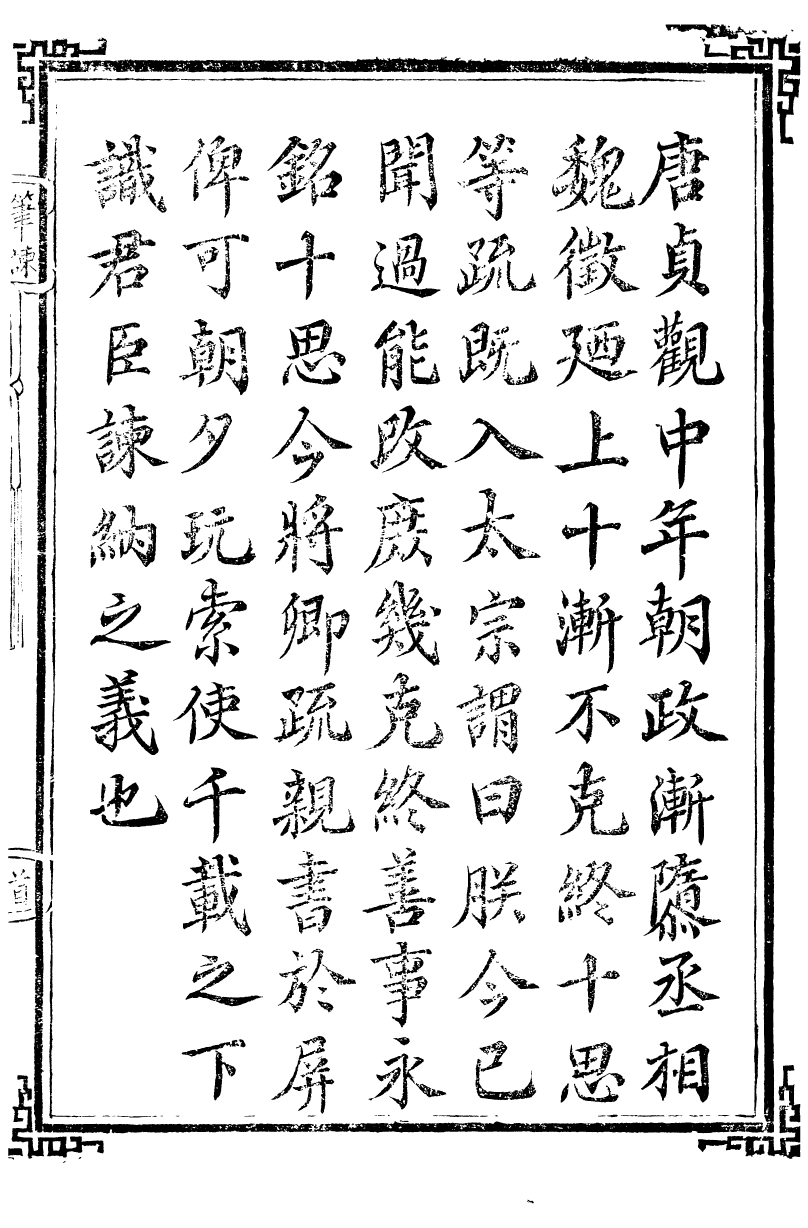 唐貞觀中年朝政漸隳丞相
魏徵廼上十漸不克終十思
等疏既入太宗謂曰朕今已
聞過能改庶幾克終善事永
銘十思今將卿疏親書於屏
俾可朝夕玩索使千載之下
識君臣諫納之義也
筆諫